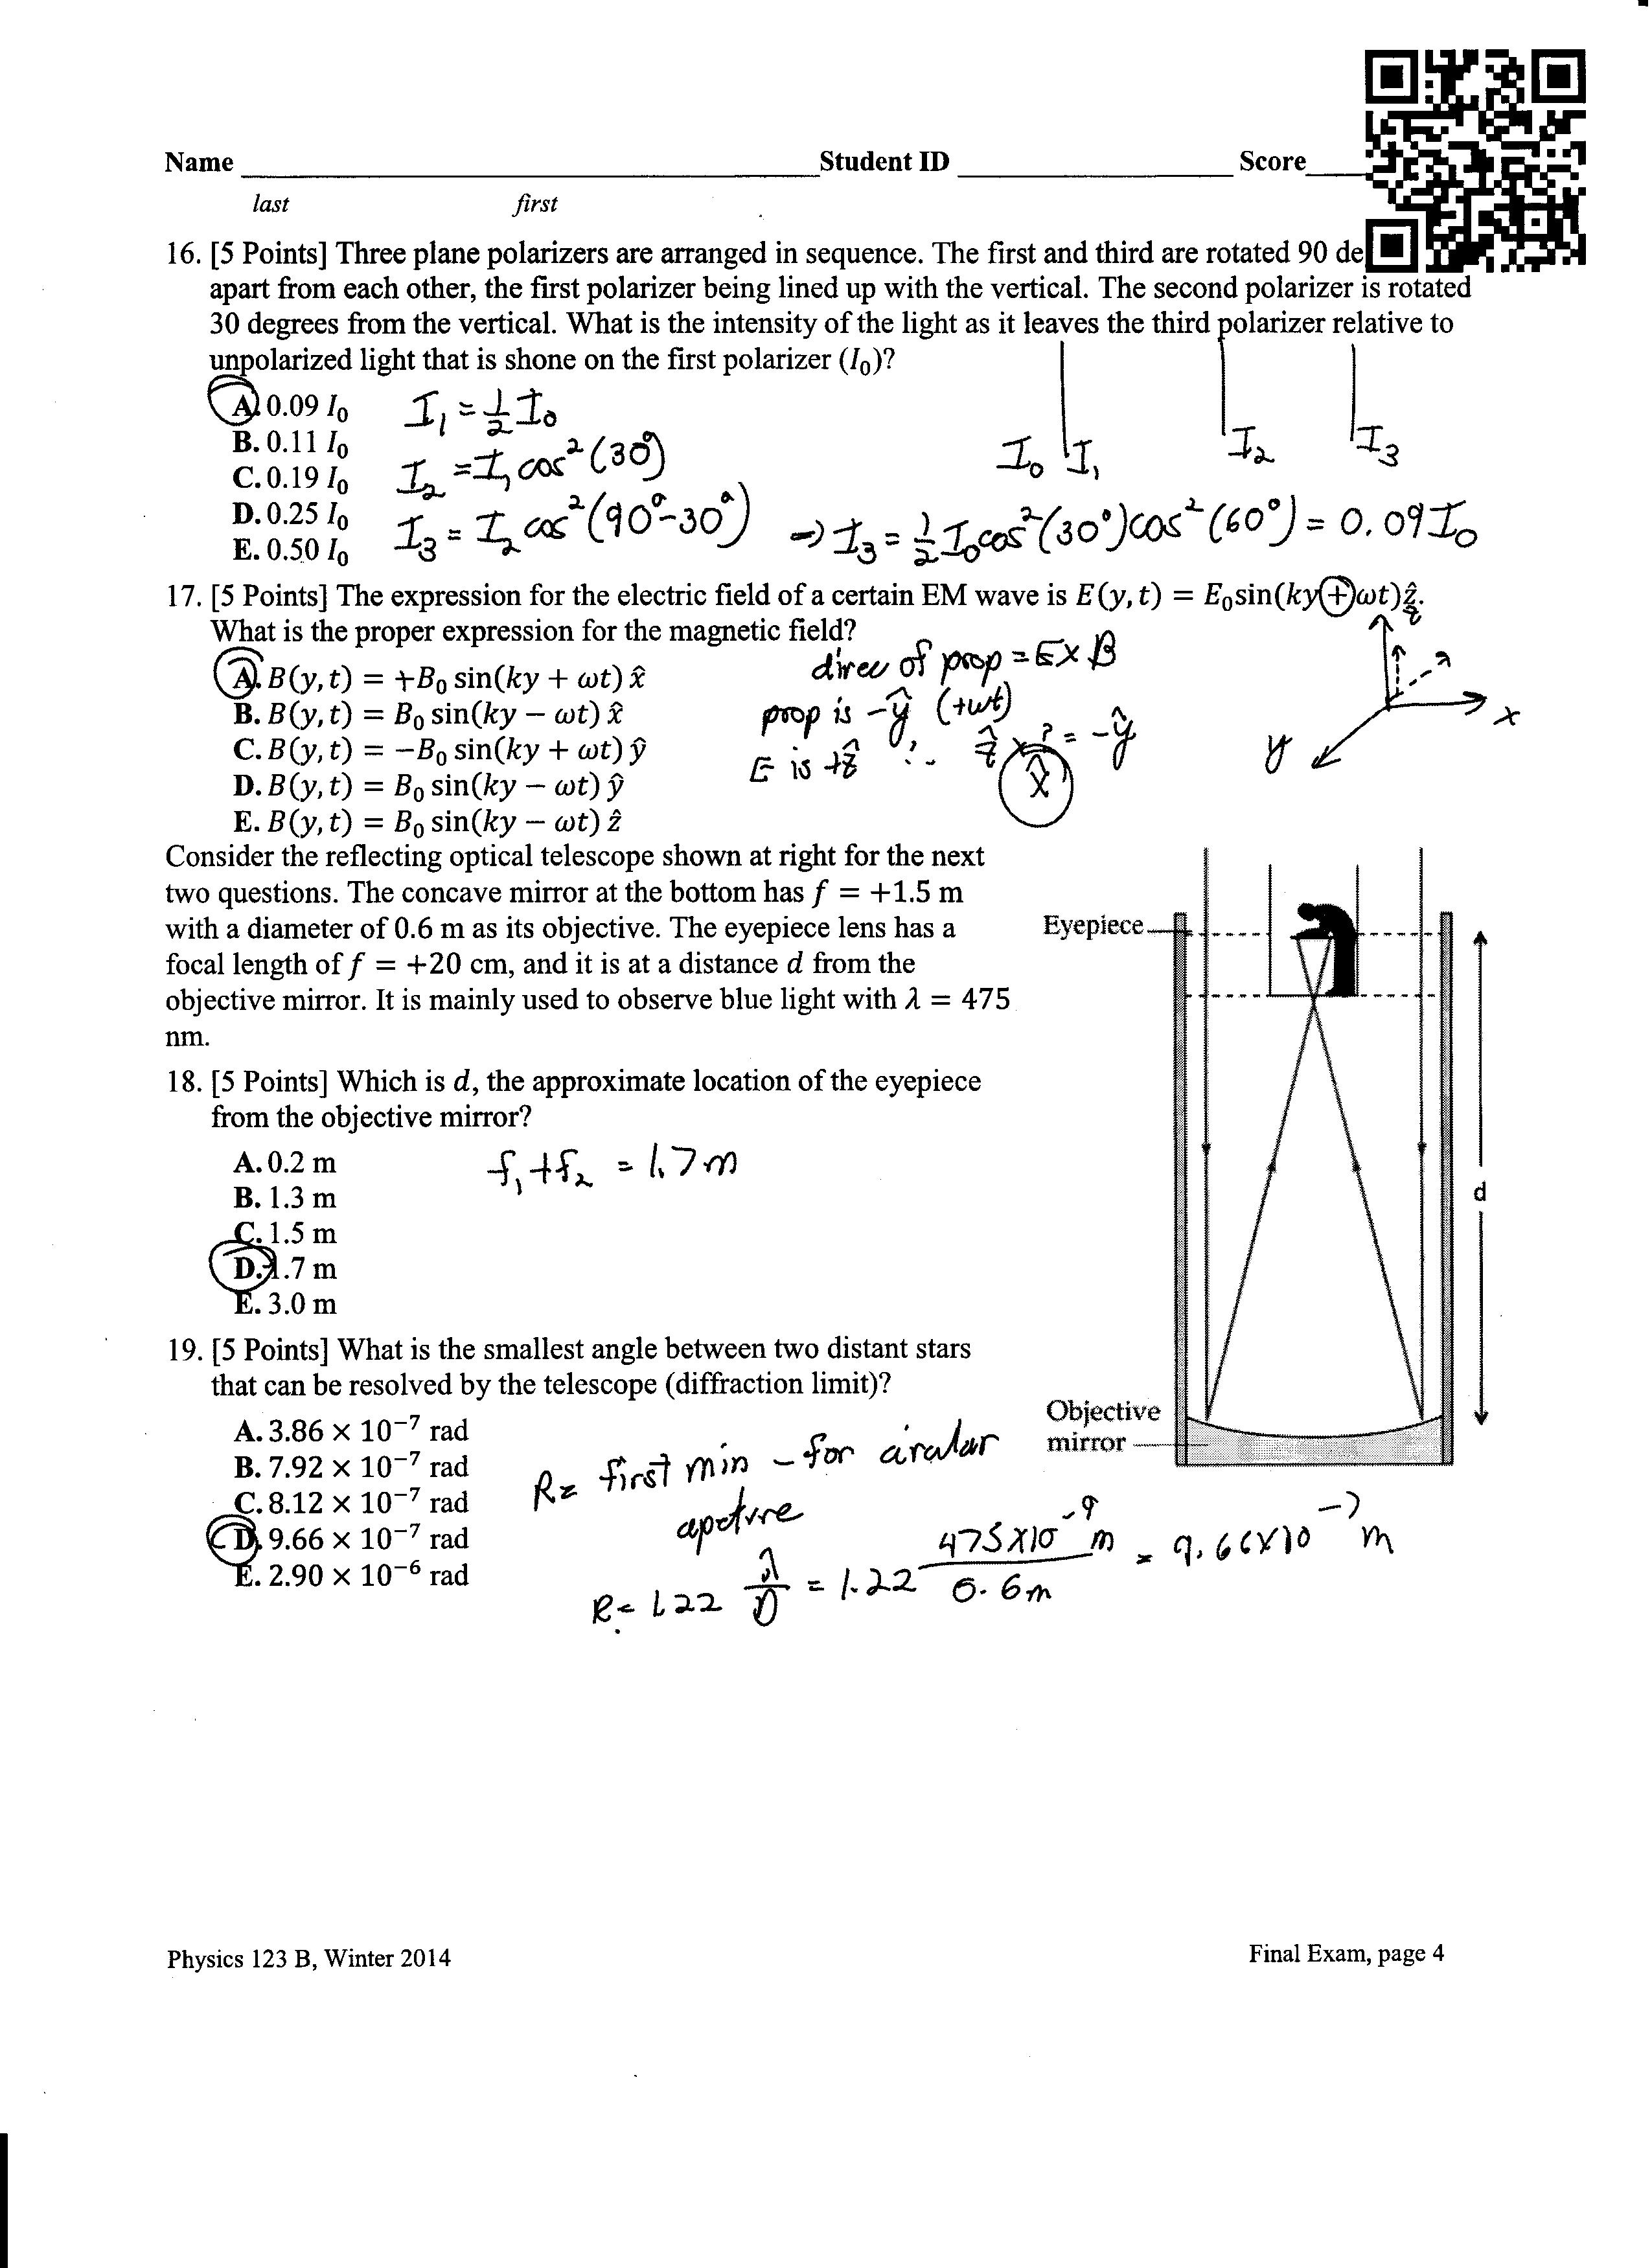 Name Student ID Score
last first
16. [5 Points] Three plane polarizers are arranged in sequence. The first and third are rotated 90 de
apart from each other, the first polarizer being lined up with the vertical. The second polarizer is rotated
30 degrees from the vertical. What is the intensity of the light as it leaves the third polarizer relative to
unpolarized light that is shone on the first polarizer (I₀)?
A. 0.09 I₀
B. 0.11 I₀
C. 0.19 I₀
D. 0.25 I₀
E. 0.50 I₀
I₁ = ½ I₀
I₂ = I₁ cos²(30°)
I₃ = I₂ cos²(90°-30°) → I₃ = ½ I₀cos²(30°)cos²(60°) = 0.09 I₀
I₀ I₁ I₂ I₃
17. [5 Points] The expression for the electric field of a certain EM wave is E(y, t) = E₀sin(ky + ωt)ẑ.
What is the proper expression for the magnetic field?
A. B(y, t) = +B₀ sin(ky + ωt) x̂
B. B(y, t) = B₀ sin(ky − ωt) x̂
C. B(y, t) = −B₀ sin(ky + ωt) ŷ
D. B(y, t) = B₀ sin(ky − ωt) ŷ
E. B(y, t) = B₀ sin(ky − ωt) ẑ
direc of prop = E × B
prop is -ŷ (+ωt)
E is +ẑ ∴ ẑ × ? = -ŷ
x̂
z
x
y
Consider the reflecting optical telescope shown at right for the next
two questions. The concave mirror at the bottom has f = +1.5 m
with a diameter of 0.6 m as its objective. The eyepiece lens has a
focal length of f = +20 cm, and it is at a distance d from the
objective mirror. It is mainly used to observe blue light with λ = 475
nm.
18. [5 Points] Which is d, the approximate location of the eyepiece
from the objective mirror?
A. 0.2 m
B. 1.3 m
C. 1.5 m
D. 1.7 m
E. 3.0 m
f₁ + f₂ = 1.7 m
Eyepiece
d
Objective
mirror
19. [5 Points] What is the smallest angle between two distant stars
that can be resolved by the telescope (diffraction limit)?
A. 3.86 × 10⁻⁷ rad
B. 7.92 × 10⁻⁷ rad
C. 8.12 × 10⁻⁷ rad
D. 9.66 × 10⁻⁷ rad
E. 2.90 × 10⁻⁶ rad
R = first min - for circular
aperture
R = 1.22 λ/D = 1.22 475×10⁻⁹ m / 0.6 m = 9.66×10⁻⁷ m
Physics 123 B, Winter 2014 Final Exam, page 4